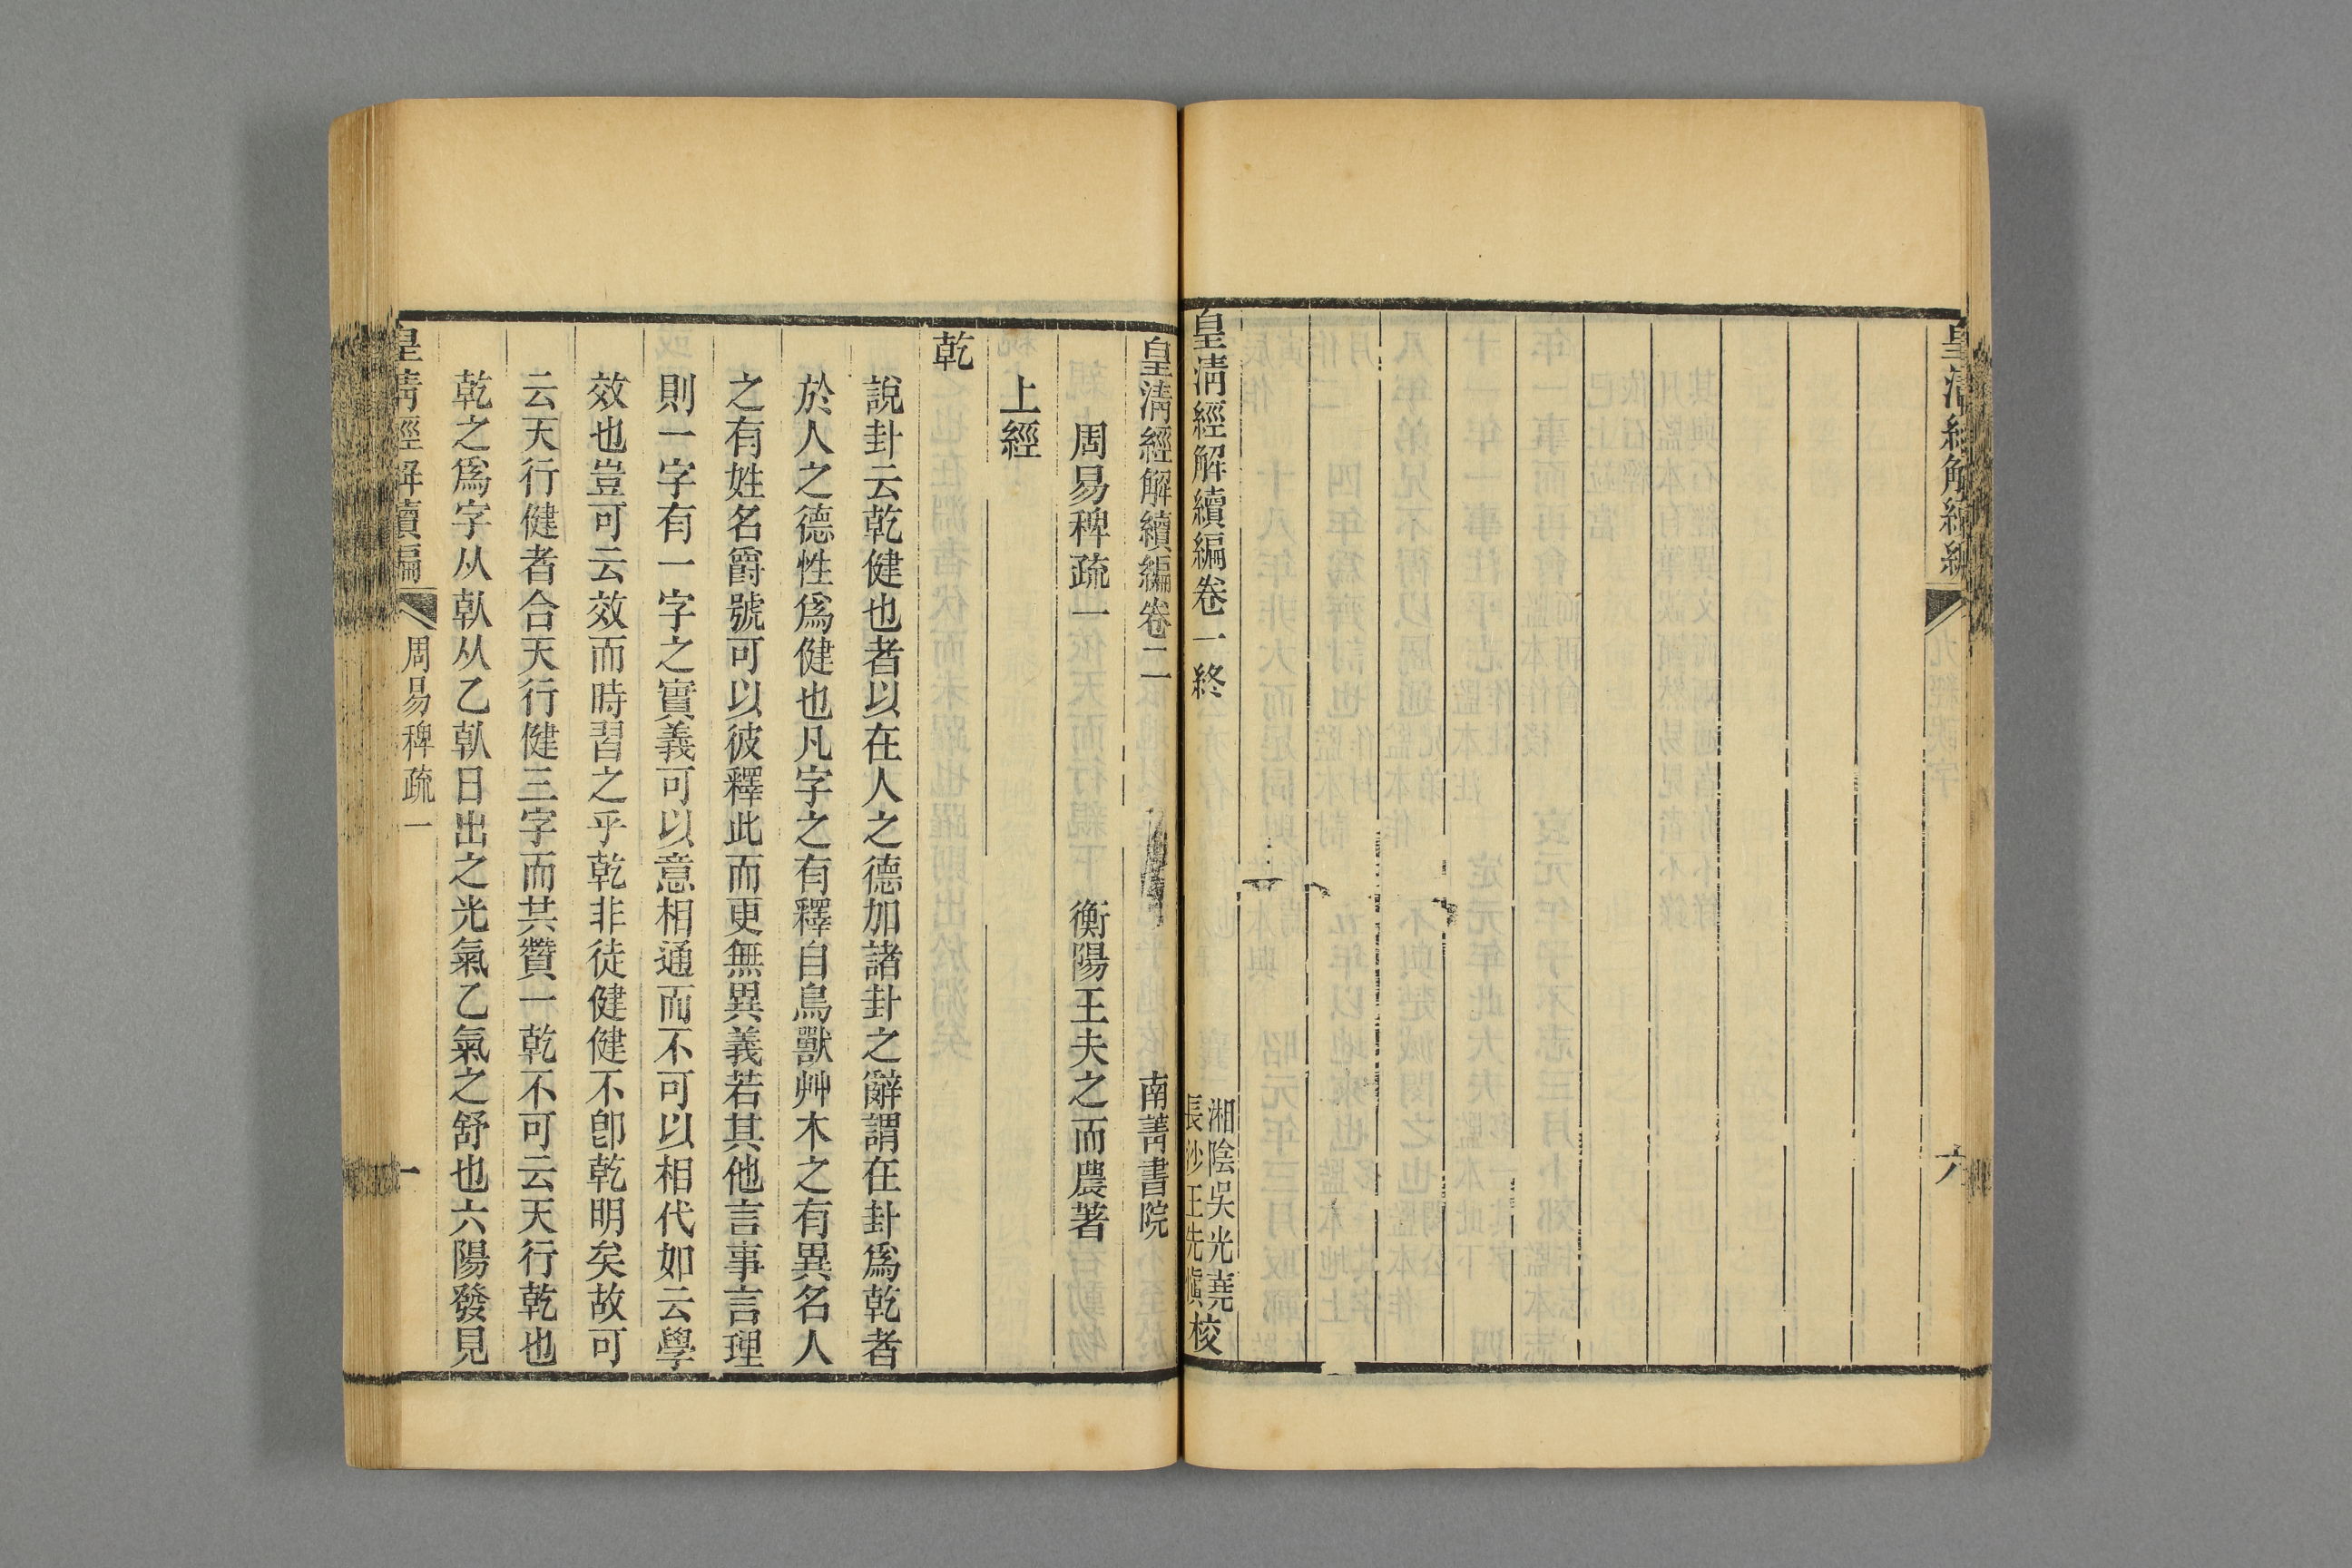 皇清經解續編
六
皇清經解續編卷一終
湘陰吳光堯
長沙王先愼校
皇清經解續編卷二
南菁書院
周易稗疏一
衡陽王夫之而農著
上經
乾
說卦云乾健也者以在人之德加諸卦之辭謂在卦爲乾者
於人之德性爲健也凡字之有釋自鳥獸艸木之有異名人
之有姓名爵號可以彼釋此而更無異義若其他言事言理
則一字有一字之實義可以意相通而不可以相代如云學
效也豈可云效而時習之乎乾非徒健健不卽乾明矣故可
云天行健者合天行健三字而共贊一乾不可云天行乾也
乾之爲字从倝从乙倝日出之光氣乙氣之舒也六陽發見
皇清經解續編
周易稗疏一
一